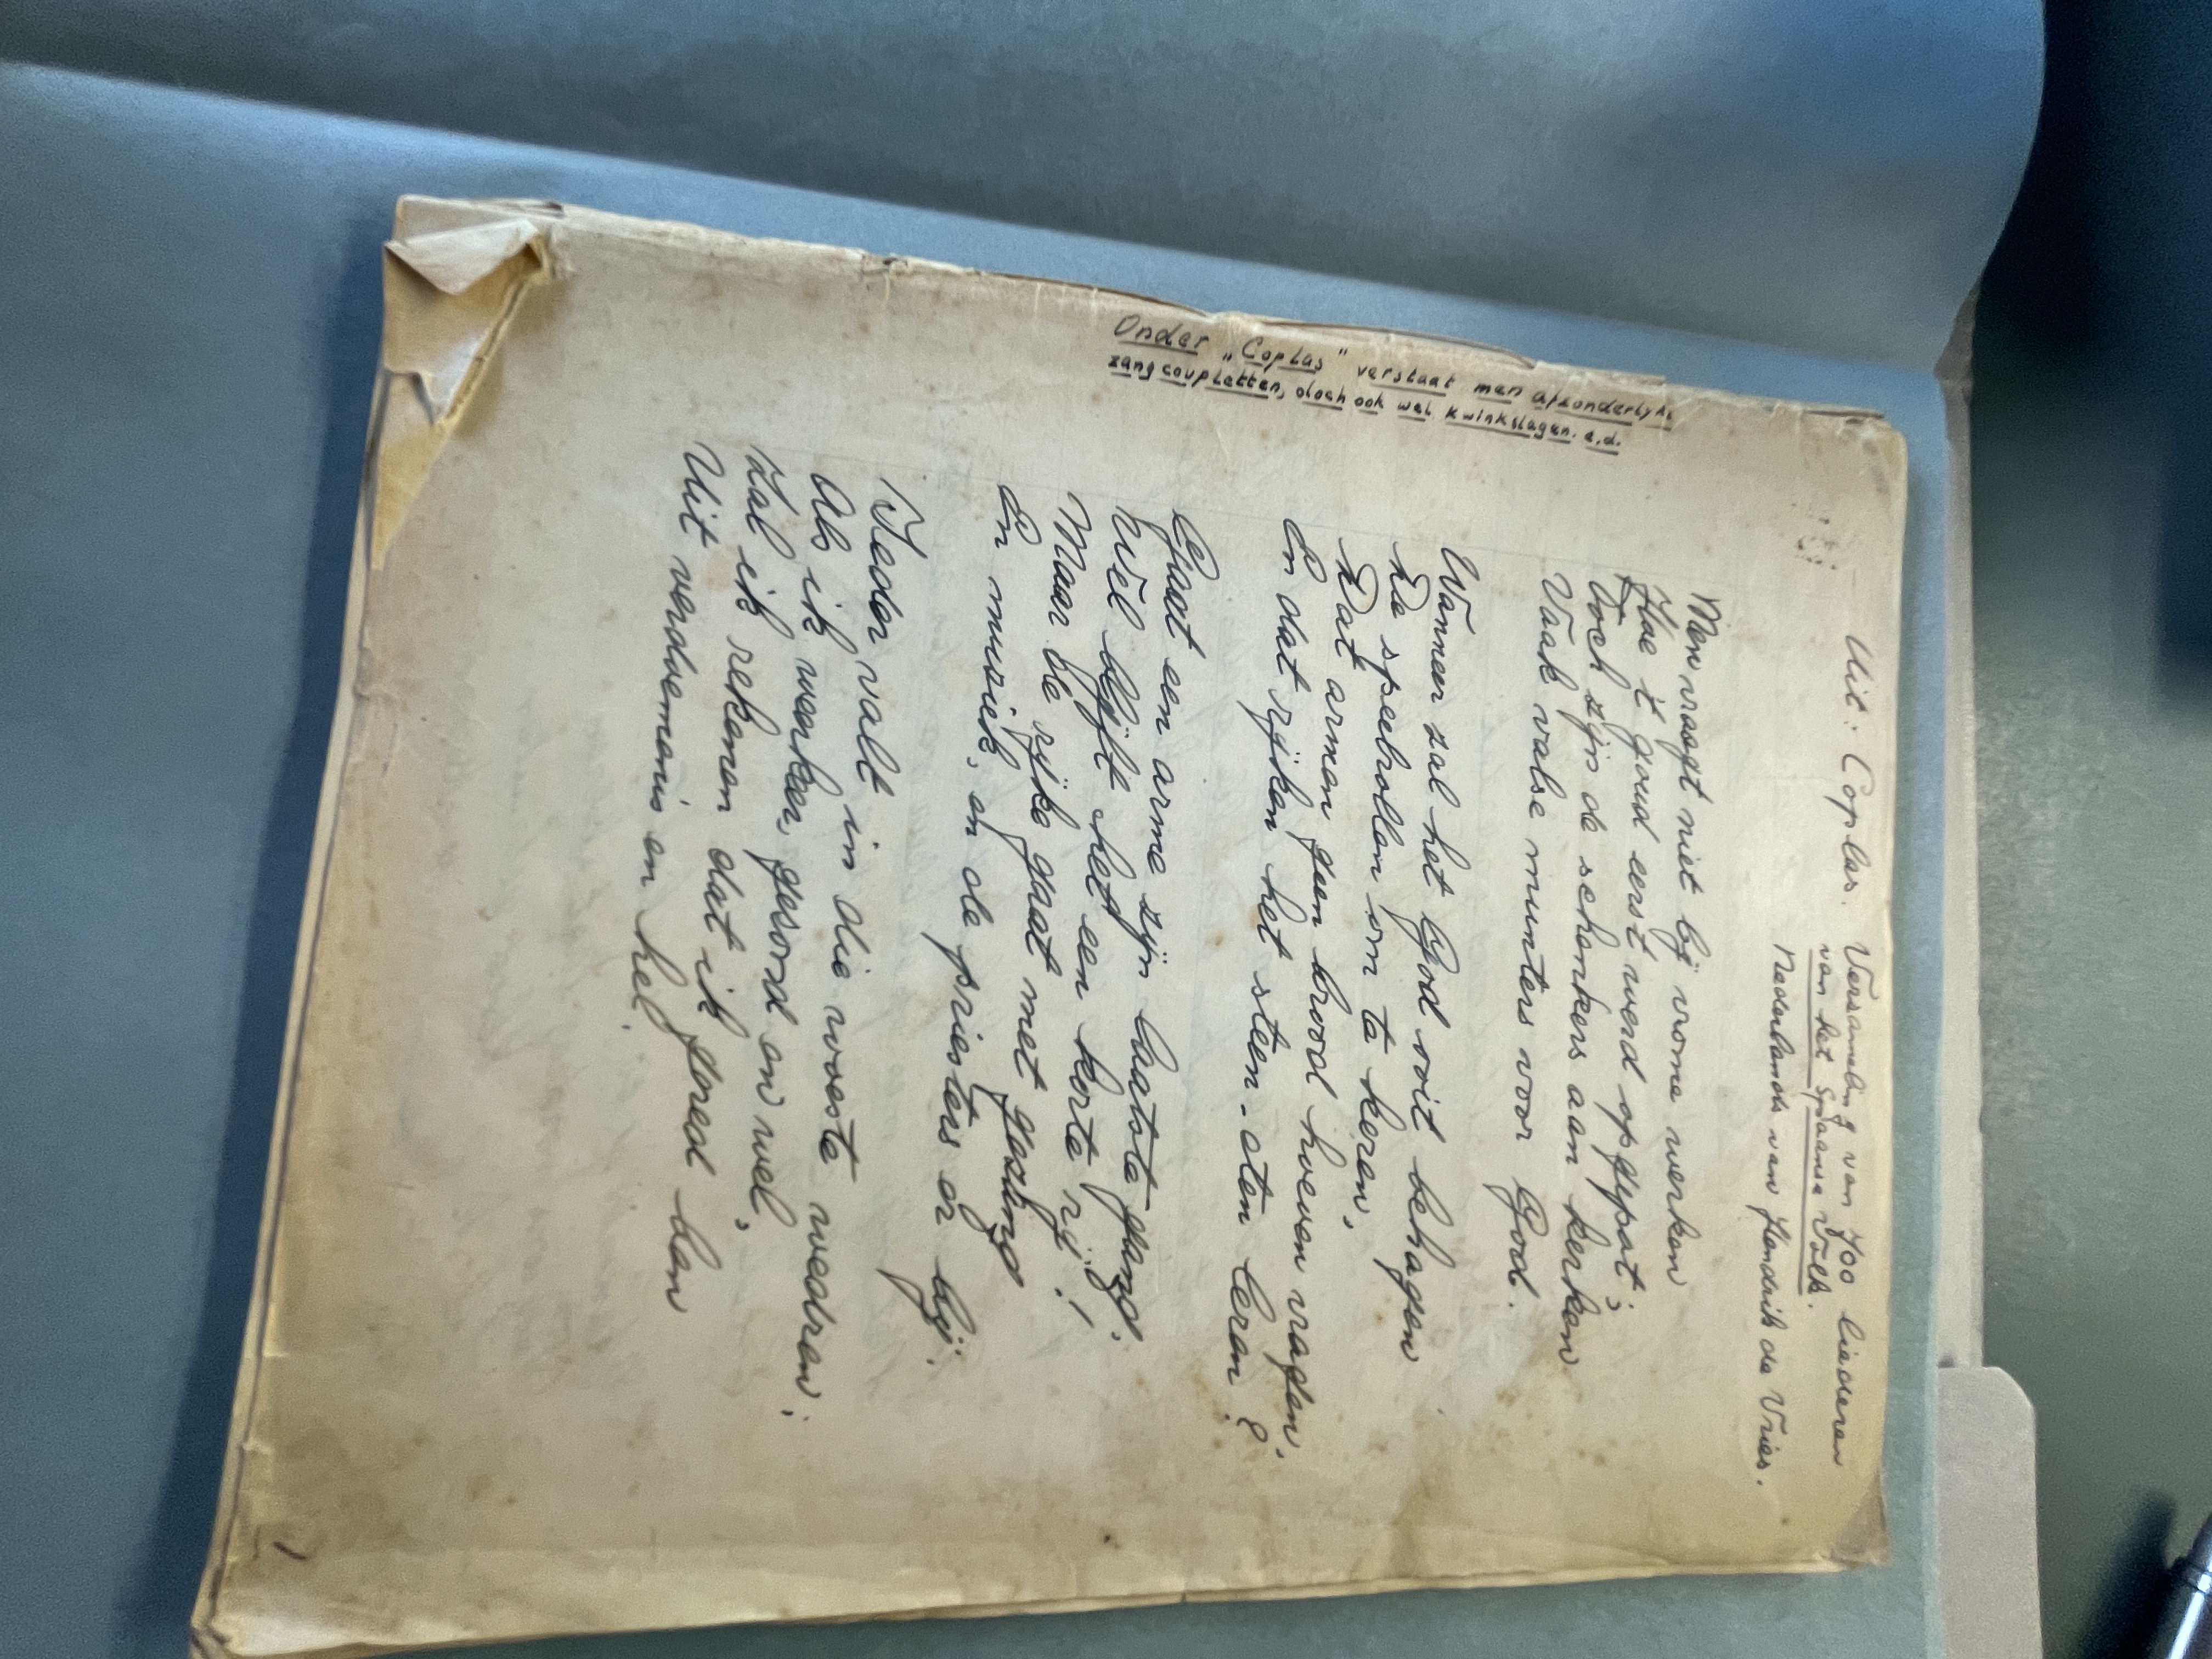 Uit: Coplas. Verzameling van 700 liederen
van het Spaanse Volk.
Nederlands van Hendrik de Vries.
Men vraagt niet bij vrome werken
Hoe 't goud eerst werd opgepot;
Toch zijn de schenkers aan kerken
Vaak valse munters voor God.
Wanneer zal het God ooit behagen
De speelrollen om te keren,
Dat armen geen brood hoeven vragen,
En dat rijken het steen-eten leren?
Gaat een arme zijn laatste gang,
Wèl blijft het een korte rij!
Maar de rijke gaat met gezang
En muziek, en de priesters er bij.
Ieder valt in die woeste wedren;
Als ik werken, gezond en wel,
Zal ik rekenen dat ik goed ben
Uit verdoemenis en hel.
Onder „Coplas" verstaat men afzonderlyke
zangcoupletten, doch ook wel kwinkslagen. e.d.
1